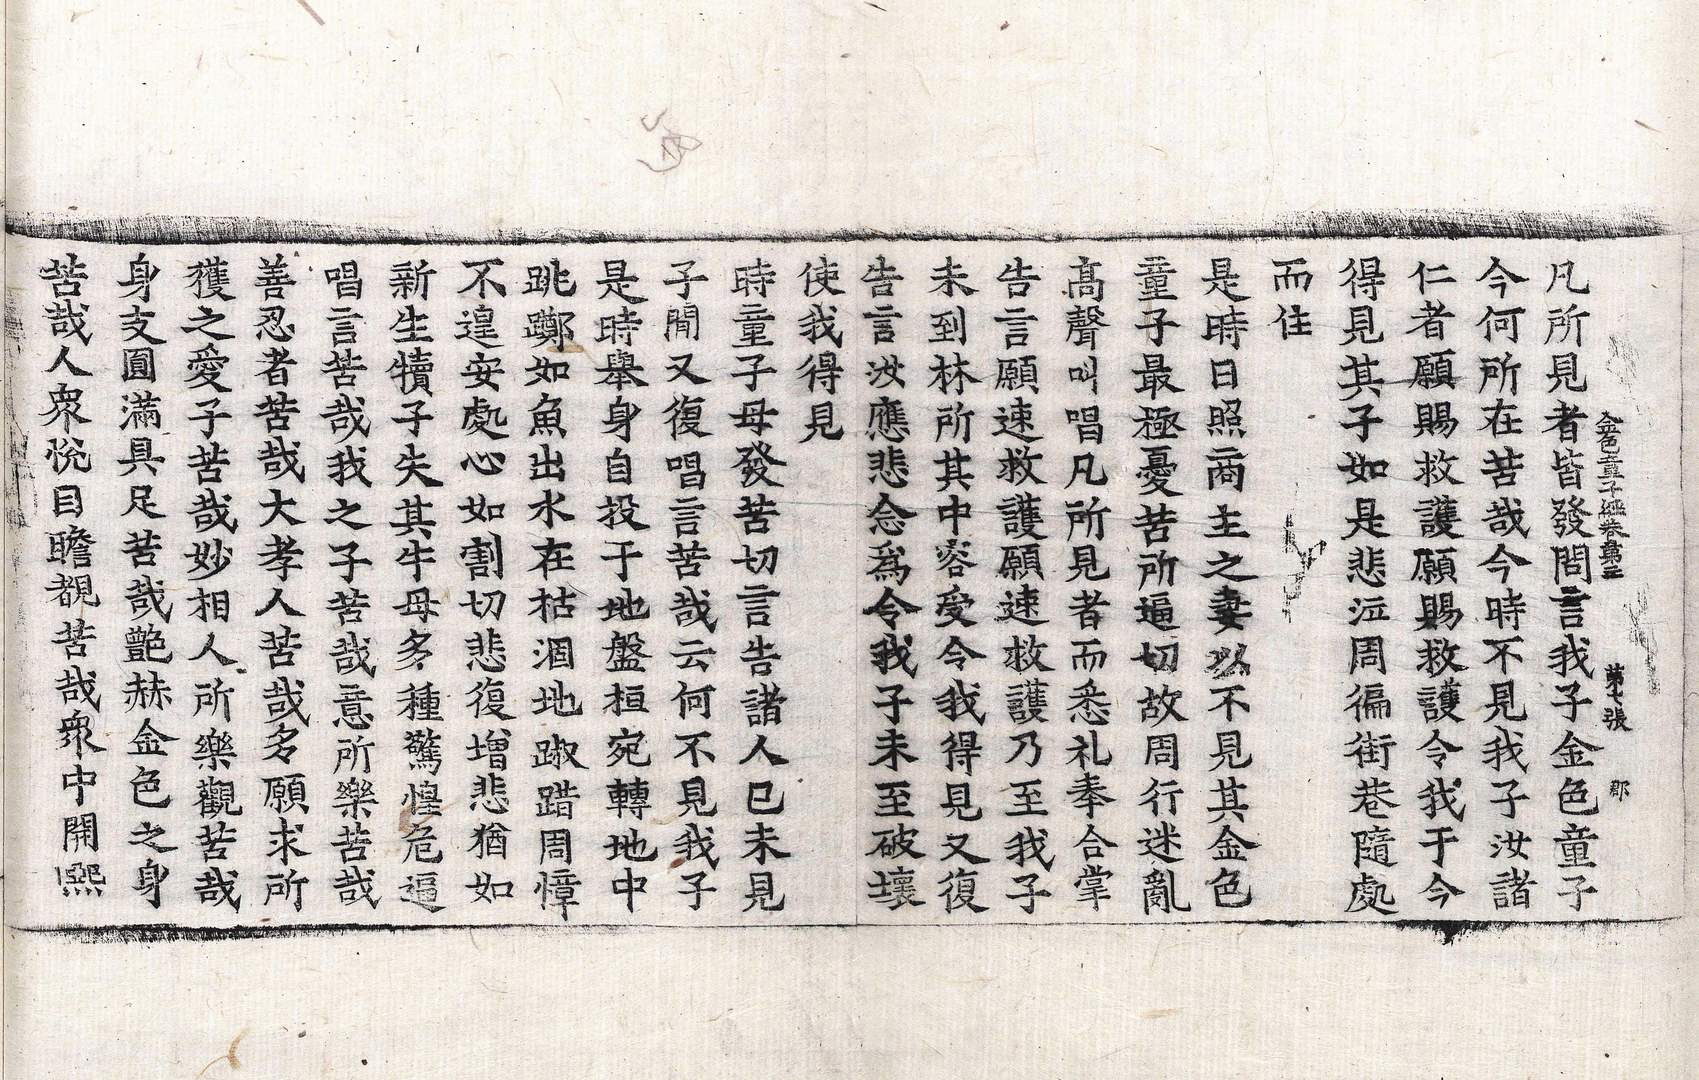 金色童子經卷第三　第七張　郡
凡所見者皆發問言我子金色童子
今何所在苦哉今時不見我子汝諸
仁者願賜救護願賜救護令我于今
得見其子如是悲泣周徧街巷隨處
而住
是時日照商主之妻以不見其金色
童子最極憂苦所逼切故周行迷亂
高聲叫唱凡所見者而悉礼奉合掌
告言願速救護願速救護乃至我子
未到林所其中容受令我得見又復
告言汝應悲念爲令我子未至破壞
使我得見
時童子母發苦切言告諸人已未見
子間又復唱言苦哉云何不見我子
是時舉身自投于地盤桓宛轉地中
跳躑如魚出水在枯涸地踧踖周慞
不遑安處心如割切悲復增悲猶如
新生犢子失其牛母多種驚惶危逼
唱言苦哉我之子苦哉意所樂苦哉
善忍者苦哉大孝人苦哉多願求所
獲之愛子苦哉妙相人所樂觀苦哉
身支圓滿具足苦哉艷赫金色之身
苦哉人衆悅目瞻覩苦哉衆中開熙